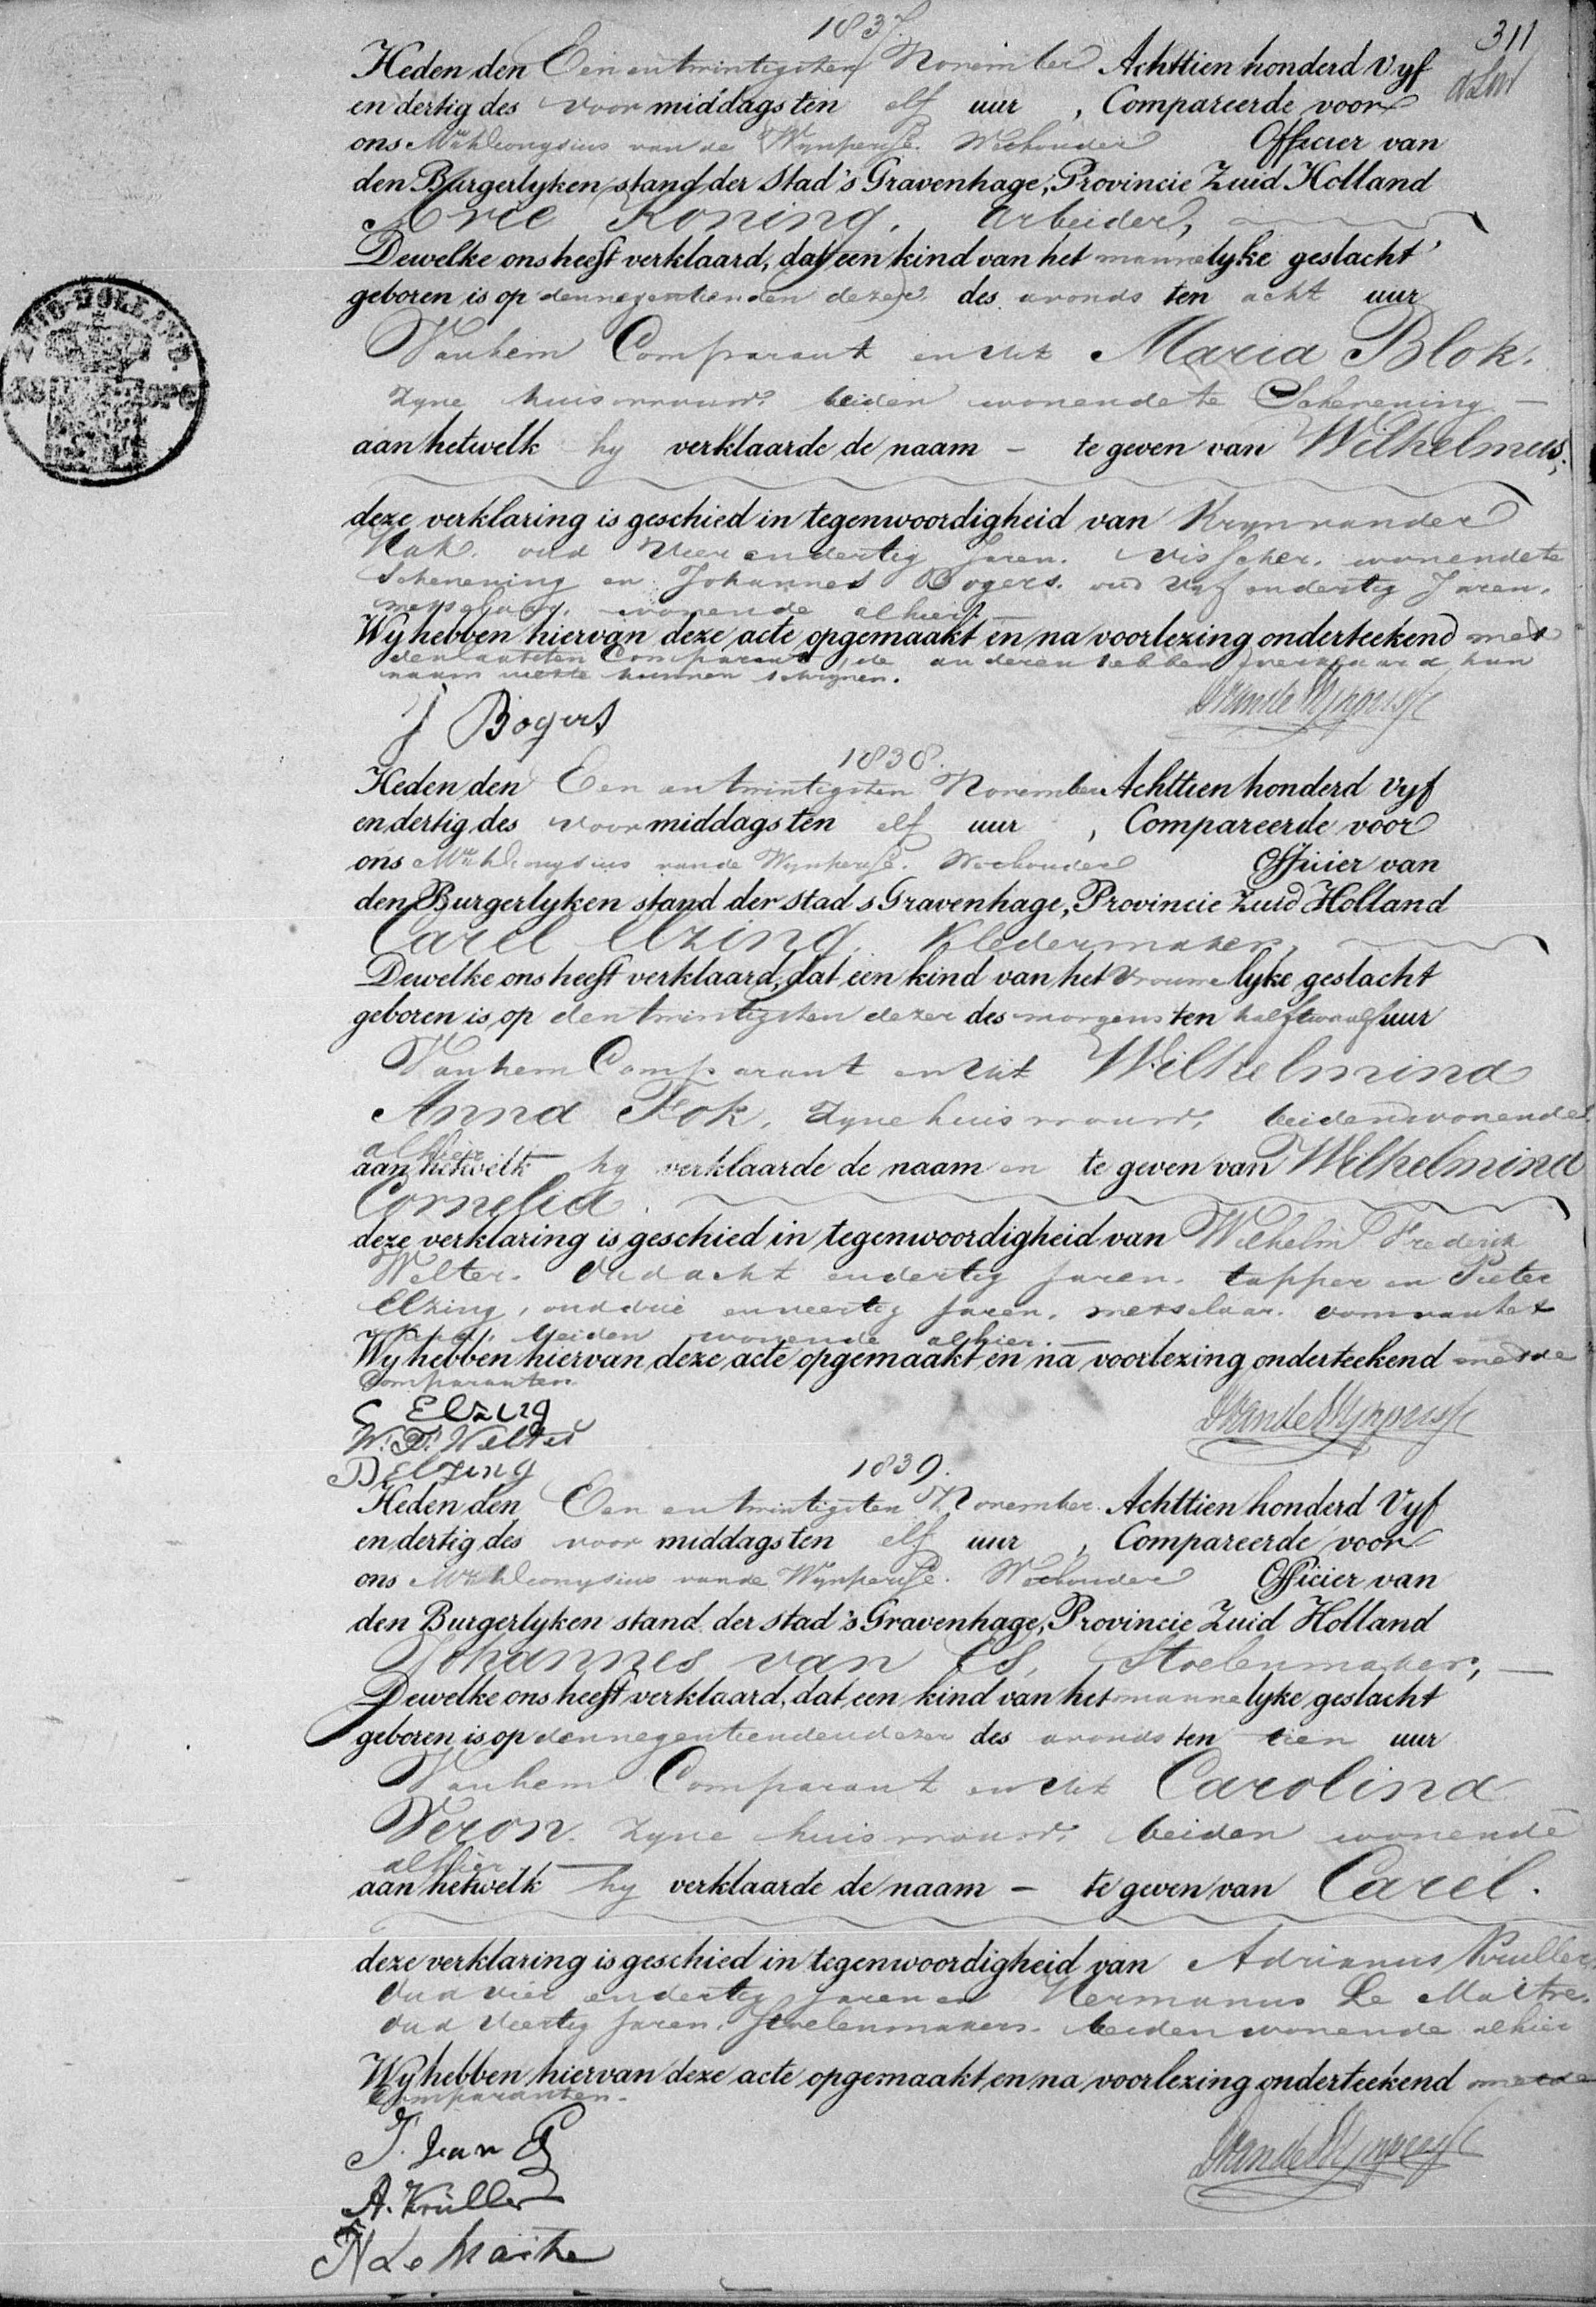 1837.
311
Heden den Een en twintigsten November Achttien honderd Vyf
en dertig des voor middags ten elf uur , Compareerde voor
ons Mr. Dionysius van de Wynpersse. Wethouder Officier van
den Burgerlyken stand der Stad 's Gravenhage, Provincie Zuid Holland
Arie Koning, arbeider,
Dewelke ons heeft verklaard, dat een kind van het mannelyke geslacht
geboren is op den negentienden dezer des avonds ten acht uur
Van hem Comparant en uit Maria Blok,
zyne huisvrouw, beiden wonende te Schevening —
aan hetwelk hy verklaarde de naam – te geven van Wilhelmus.
deze verklaring is geschied in tegenwoordigheid van Kryn van der
oud vier en dertig Jaren. visscher. wonende te
Schevening en Johannes Bogers. oud Vyf en dertig Jaren.
wonende alhier. —
Wy hebben hiervan deze acte opgemaakt en na voorlezing onderteekend met
den laatsten Comparant, de anderen hebben verklaard hun
naam niet te kunnen schryven.
J Bogers
DvandeWynpersse
1838.
Heden den Een en twintigsten November Achttien honderd Vyf
en dertig des voor middags ten elf uur , Compareerde voor
ons Mr. Dionysius van de Wynpersse. Wethouder Officier van
den Burgerlyken stand der stad s Gravenhage, Provincie Zuid Holland
Carel Elzing, Kledermaker,
Dewelke ons heeft verklaard, dat een kind van het vrouwelyke geslacht
geboren is op den twintigsten dezer des morgens ten half twaalf uur
Van hem Comparant en uit Wilhelmina
Anna Fok, zyne huisvrouw, beiden wonende
alhier
aan hetwelk hy verklaarde de naam en te geven van Wilhelmina
Cornelia.
deze verklaring is geschied in tegenwoordigheid van Wilhelm Frederik
Welter. Oud acht en dertig Jaren. tapper en Pieter
Elzing, oud drie en veertig Jaren. metselaar. oom van het
Kind, beiden wonende alhier. —
Wy hebben hiervan deze acte opgemaakt en na voorlezing onderteekend met de
Comparanten
C Elzing
W. F. Welter
P Elzing
DvandeWynpersse
1839.
Heden den Een en twintigsten November Achttien honderd Vyf
en dertig des voor middags ten elf uur , Compareerde voor
ons Mr. Dionysius van de Wynpersse. Wethouder Officier van
den Burgerlyken stand der stad 's Gravenhage, Provincie Zuid Holland
Johannes van Es, Stoelenmaker, —
Dewelke ons heeft verklaard, dat een kind van het mannelyke geslacht
geboren is op den negentienden dezer des avonds ten tien uur
Van hem Comparant en uit Carolina
Veron. zyne huisvrouw, beiden wonende
alhier —
aan hetwelk hy verklaarde de naam – te geven van Carel.
deze verklaring is geschied in tegenwoordigheid van Adrianus Kruller,
Oud vier en dertig Jaren en Hermanus Le Maitre.
Oud Veertig Jaren. Stoelenmakers. beiden wonende alhier
Wy hebben hiervan deze acte opgemaakt en na voorlezing onderteekend met de
Comparanten.
J. van Es
A. Krüller
H Le Maitre
DvandeWynpersse
ZUID-HOLLAND.